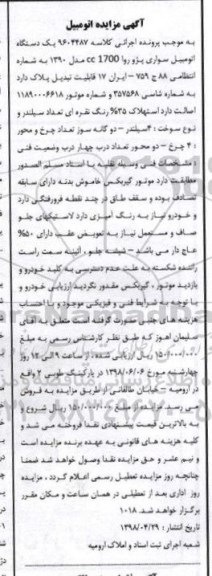 آگهی مزایده اتومبیل
به موجب پرونده اجرائی کلاسه ۹۶۰۳۴۸۷ یک دستگاه
اتومبیل سواری پژو روا 1700 cc مدل ۱۳۹۰ به شماره
انتظامی ۸۸ ج ۷۵۹ - ایران ۱۷ قابلیت تبدیل پلاک دارد
به شماره شاسی ۳۵۷۵۶۸ و شماره موتور ۱۱۸۹۰۰۰۶۶۱۸
اصالت دارد استهلاک ۳۵% رنگ نقره ای تعداد سیلندر و
نوع سوخت : ۴سیلندر - دو گانه سوز تعداد چرخ و محور
: ۴ چرخ - دو محور تعداد درب چهار درب وضعیت فنی
: مشخصات فنی وسیله نقلیه با اسناد مسلم الصدور
مطابقت دارد موتور گیربکس خاموش بدنه دارای سابقه
تصادف بوده و سقف طاق در چند نقطه فرورفتگی دارد
و خودرو نیاز به رنگ آمیزی دارد لاستیکهای جلو
صاف و مستعمل نیاز به تعویض عقب دارای ۵۰%
عاج دار می باشد - شیشه جلو ، آئینه سمت راست
راننده شکسته به علت عدم دسترسی به کلید خودرو و
بازدید موتور ، گیربکس مقدور نگردید ارزیابی خودرو
با توجه به شرایط فنی و فیزیکی موجود و با احتساب
هزینه های جنبی صورت گرفته است متعلق به آقای
سلیمان اهوز که طبق نظر کارشناس رسمی به مبلغ
۱۵۰/۰۰۰/۰۰۰ ریال ارزیابی شده ، از ساعت ۹ الی ۱۲ روز
چهارشنبه مورخ ۱۳۹۸/۰۶/۰۶ در پارکینگ طوبی ۲ واقع
در ارومیه خیابان طالقانی از طریق مزایده به فروش
می رسد. مزایده از مبلغ ۱۵۰/۰۰۰/۰۰۰ ریال شروع و
به بالاترین قیمت پیشنهادی نقدا فروخته می شد و
کلیه هزینه های قانونی به عهده برنده مزایده است
و نیم عشر و حق مزایده نقدا وصول خواهد شد ضمنا
چنانچه روز مزایده تعطیل رسمی اعلام گردد ، مزایده
روز اداری بعد از تعطیلی در همان ساعت و مکان مقرر
برگزار خواهد شد. ۱۰۱۸
تاریخ انتشار : ۱۳۹۸/۰۴/۲۹
شعبه اجرای ثبت اسناد و املاک ارومیه